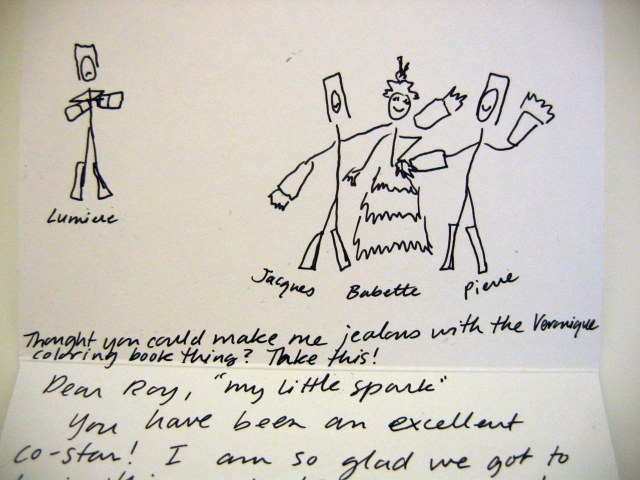 Lumiere
Jacques Babette Pierre
Thought you could make me jealous with the Veronique
coloring book thing? Take this!
Dear Roy, "my little spark"
You have been an excellent
co-star! I am so glad we got to